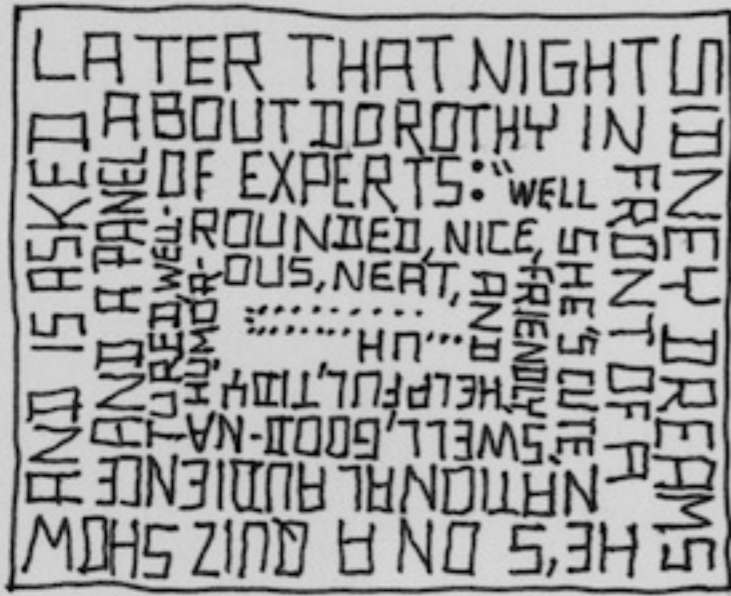 LATER THAT NIGHT
SIDNEY DREAMS
HE'S ON A QUIZ SHOW
AND IS ASKED
ABOUT DOROTHY IN
FRONT OF A
NATIONAL AUDIENCE
AND A PANEL
OF EXPERTS: "WELL
SHE'S CUTE,
SWELL, GOOD-NA-
TURED, WELL-
ROUNDED, NICE,
FRIENDLY,
HELPFUL, TIDY
HUMOR-
OUS, NEAT,
AND
...UH.......
..........